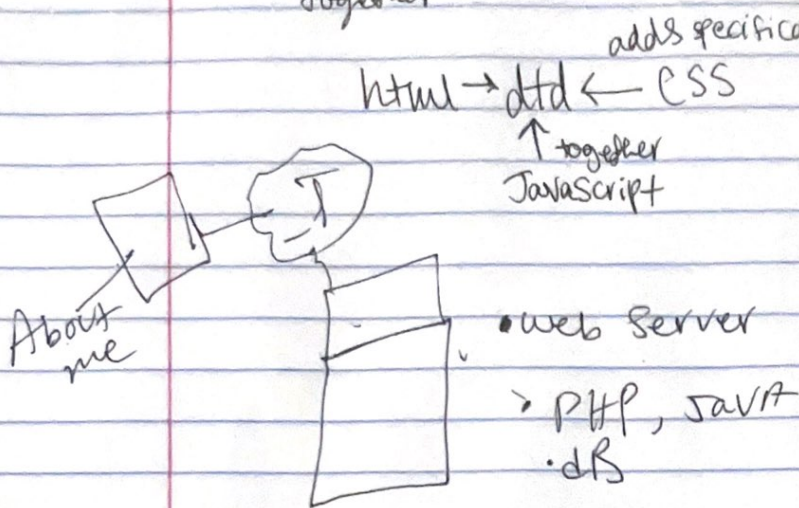 together
adds specifica
html → dtd ← CSS
↑ together
JavaScript
I
About
me
• web server
> PHP, JAVA
• dB